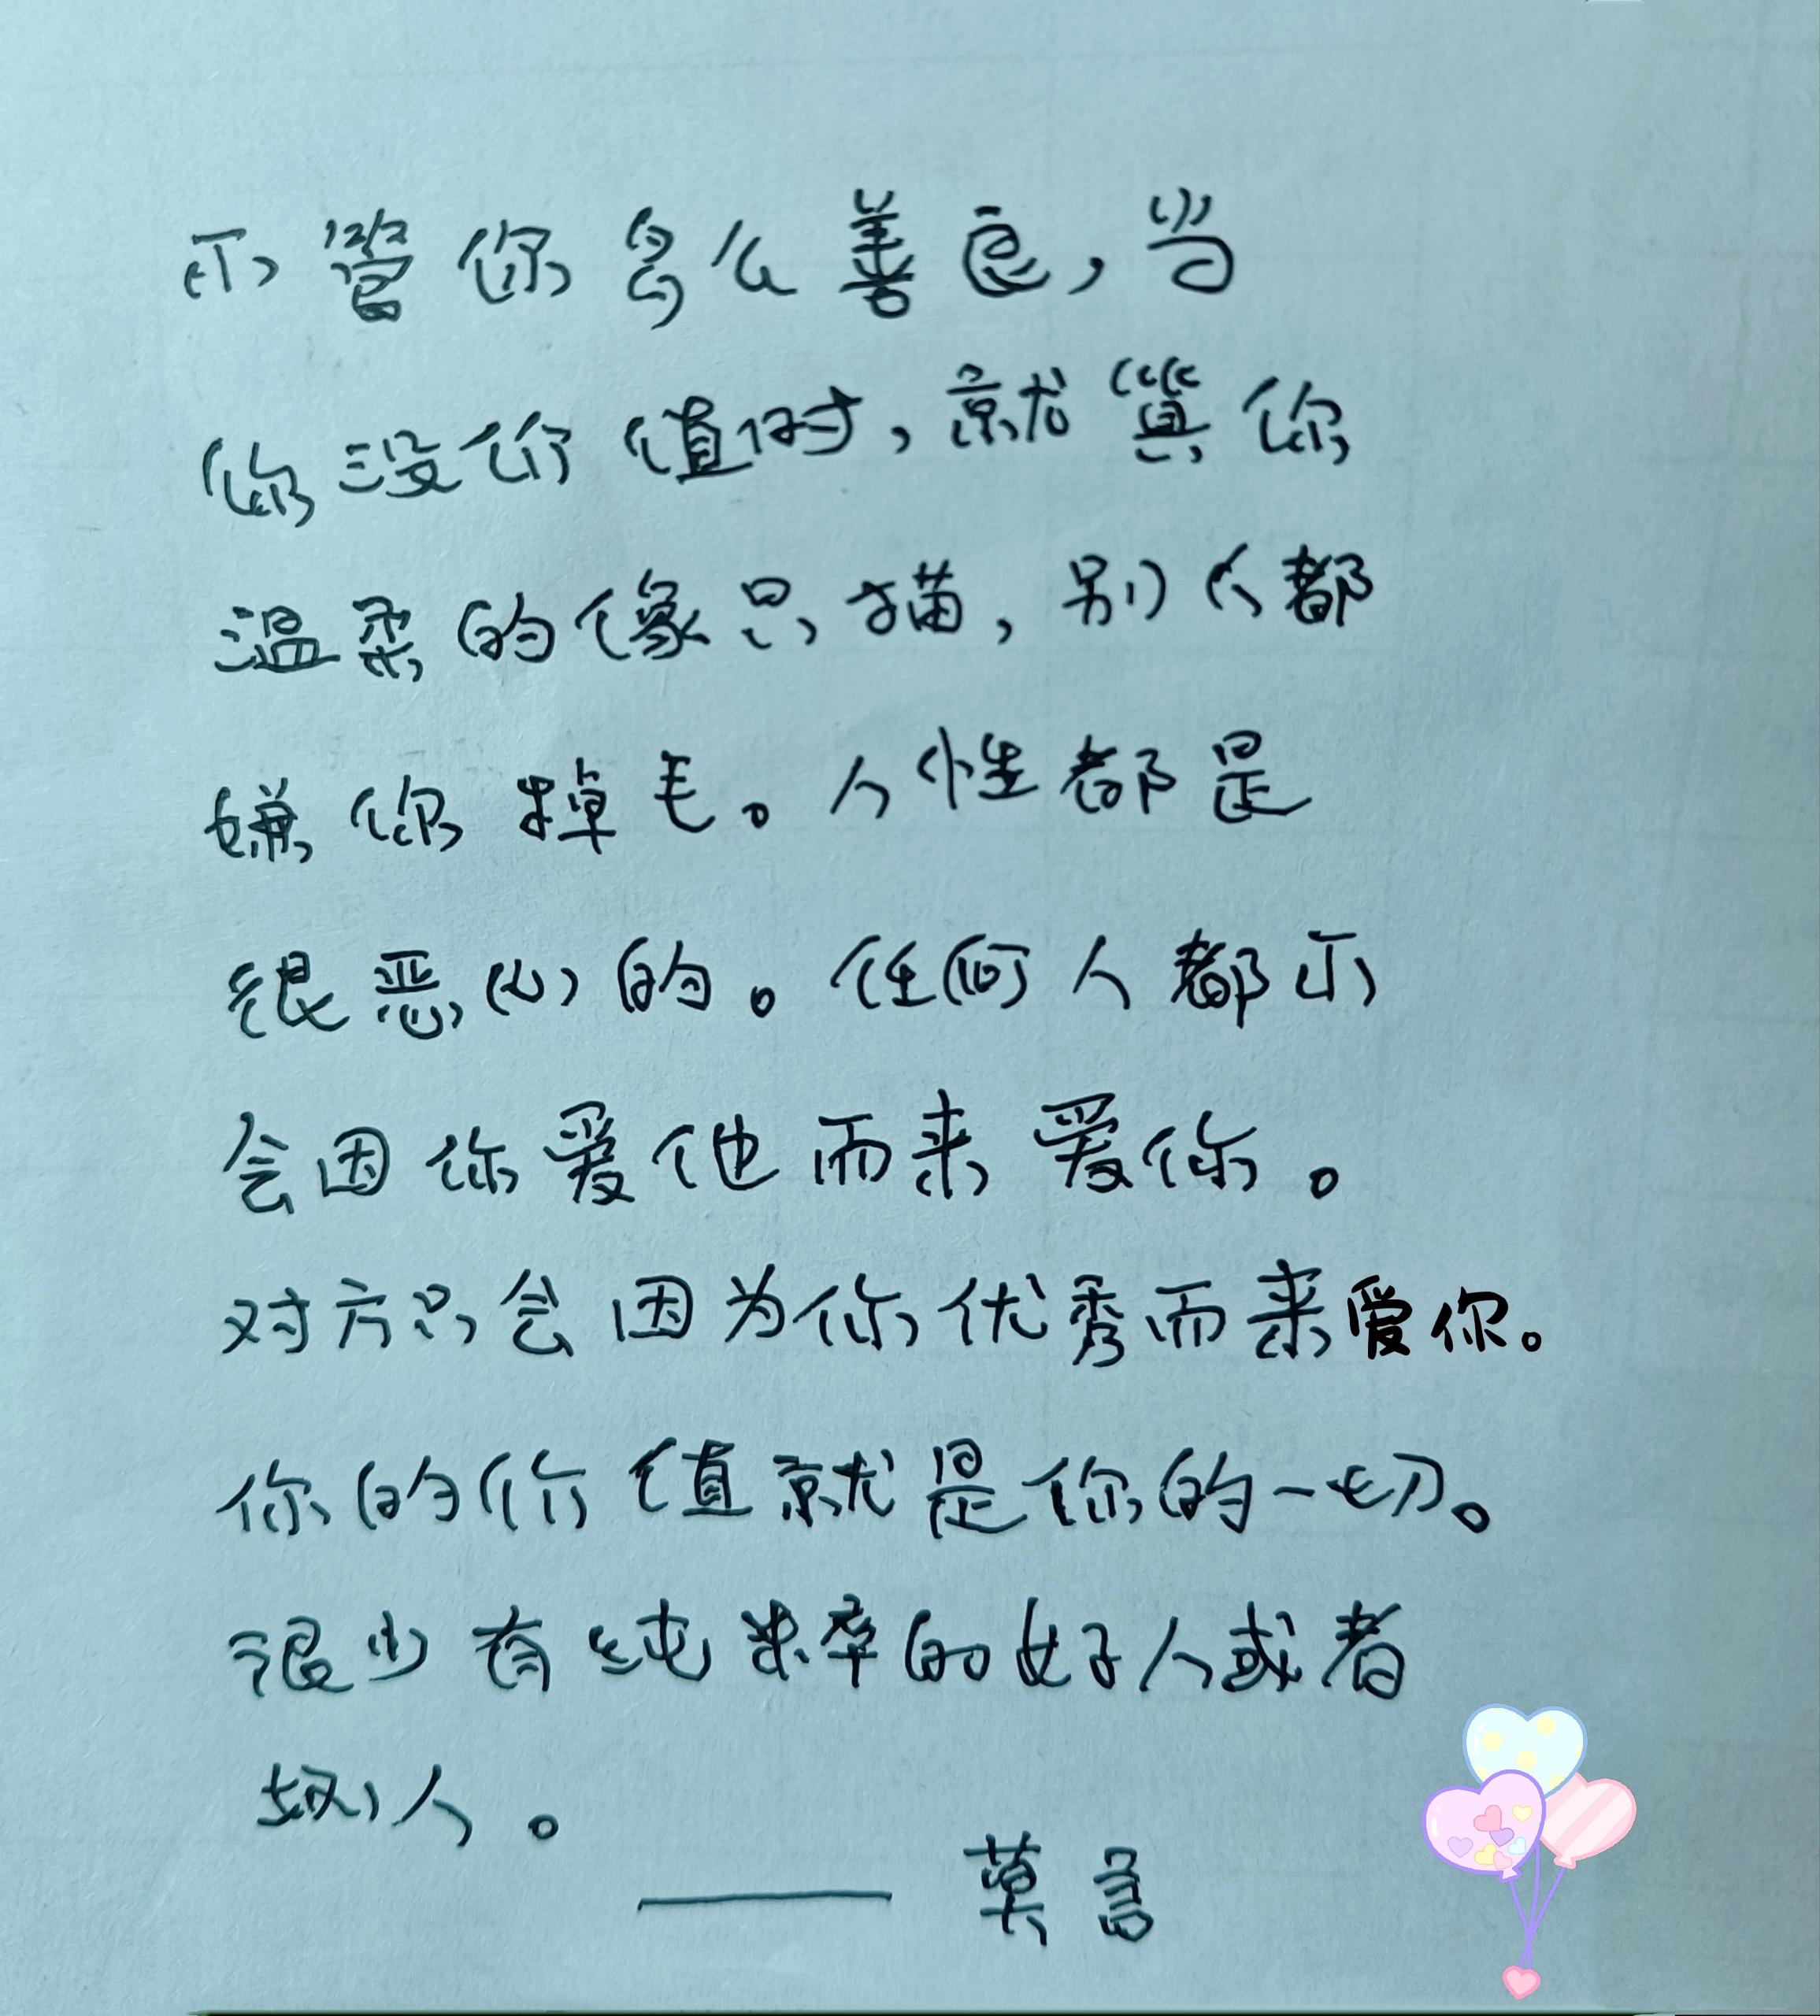 不管你多么善良，当
你没价值时，就算你
温柔的像只猫，别人都
嫌你掉毛。人性都是
很恶心的。任何人都不
会因你爱他而来爱你。
对方只会因为你优秀而来爱你。
你的价值就是你的一切。
很少有纯粹的好人或者
坏人。
——莫言